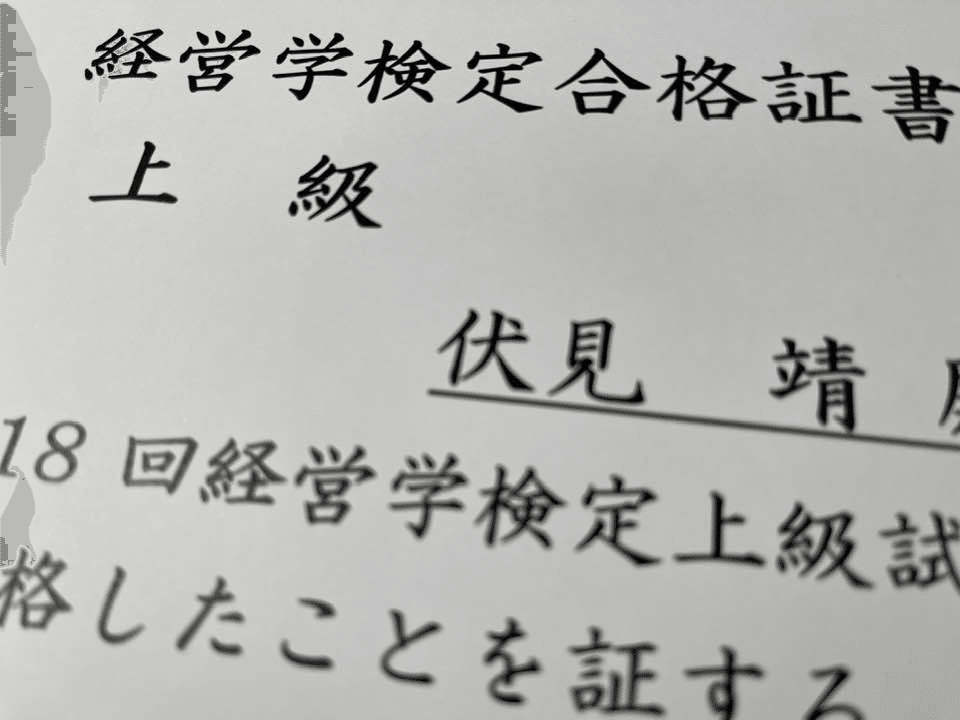 経営学検定合格証書
上 級
伏見 靖
18 回経営学検定上級試
格したことを証する